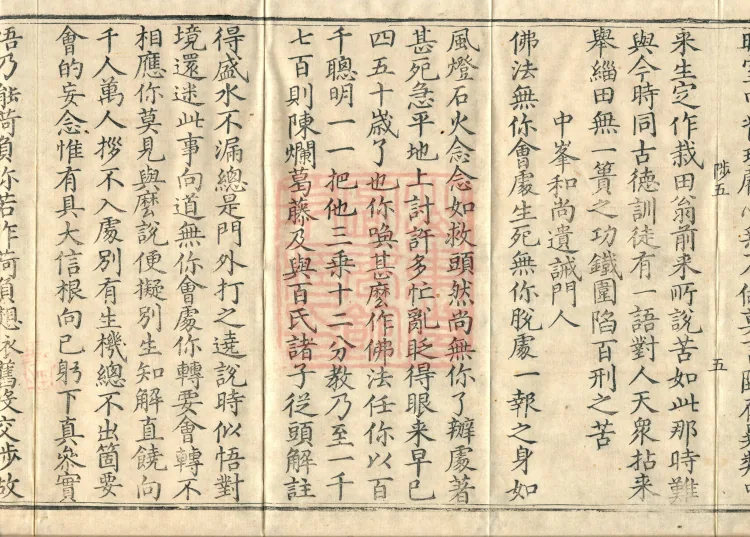 陟五
五
来生定作栽田翁前来所說苦如此那時難
與今時同古德訓徒有一語對人天衆拈来
舉緇田無一簣之功鐵圍陷百刑之苦
中峯和尚遺誡門人
佛法無你會處生死無你脫處一報之身如
風燈石火念念如救頭然尚無你了辦處著
甚死急平地上討許多忙亂眨得眼来早已
四五十歲了也你喚甚麼作佛法任你以百
千聰明一一把他三乘十二分教乃至一千
七百則陳爛葛藤及與百氏諸子從頭解註
得盛水不漏總是門外打之遶說時似悟對
境還迷此事向道無你會處你轉要會轉不
相應你莫見與麼說便擬別生知解直饒向
千人萬人拶不入處別有生機總不出箇要
會的妄念惟有具大信根向己躬下真參實
悟乃能荷負你若作荷負想依舊沒交涉故